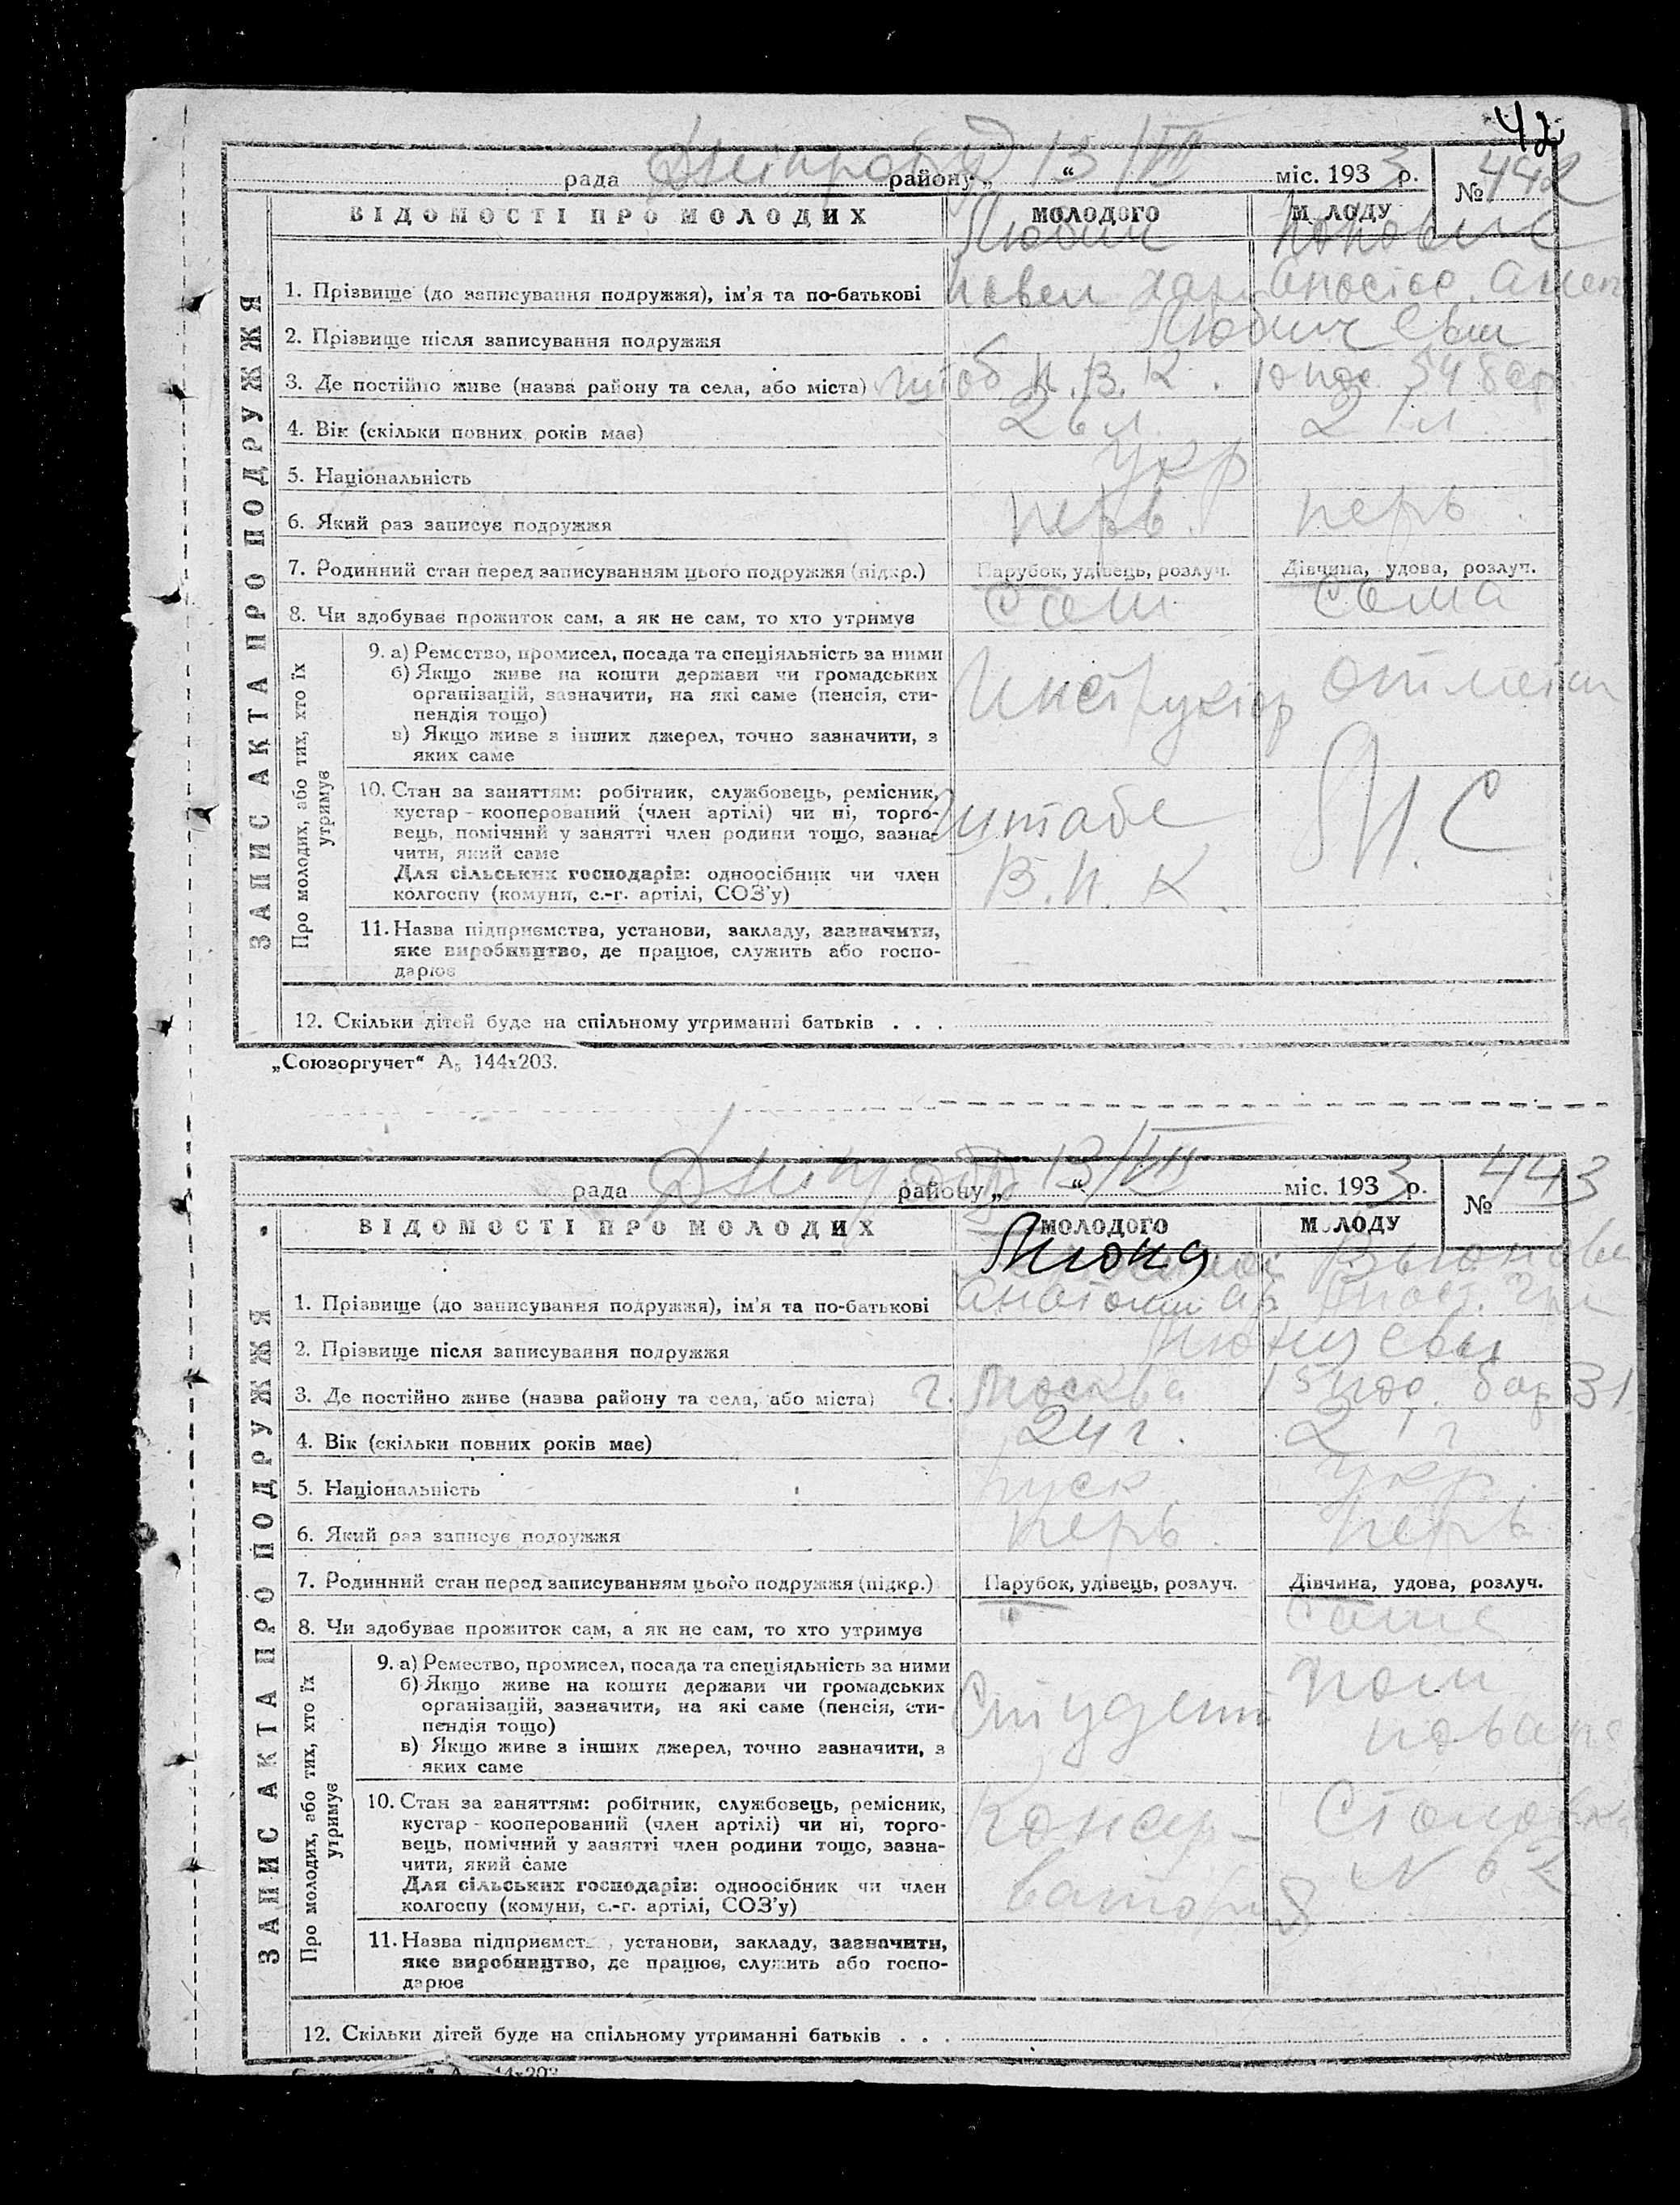 42
рада району „ 13/VII “ міс. 1933 р. № 442
ВІДОМОСТІ ПРО МОЛОДИХ МОЛОДОГО М ЛОДУ
ЗАПИС АКТА ПРО ПОДРУЖЖЯ
1. Прізвище (до записування подружжя), ім'я та по-батькові Павел Хар.
2. Прізвище після записування подружжя
3. Де постійно живе (назва району та села, або міста) штаб П.В.К. 54 бар
4. Вік (скільки повних років має) 26 л. 21 л.
5. Національність укр
6. Який раз записує подружжя перв. перв.
7. Родинний стан перед записуванням цього подружжя (підкр.) Парубок, удівець, розлуч. Дівчина, удова, розлуч.
8. Чи здобуває прожиток сам, а як не сам, то хто утримує сам сама
Про молодих, або тих, хто їх утримує
9. а) Ремество, промисел, посада та спеціяльність за ними
б) Якщо живе на кошти держави чи громадських
організацій, зазначити, на які саме (пенсія, сти-
пендія тощо)
в) Якщо живе з інших джерел, точно зазначити, з
яких саме
Инструктор
10. Стан за заняттям: робітник, службовець, ремісник,
кустар - кооперований (член артілі) чи ні, торго-
вець, помічний у занятті член родини тощо, зазна-
чити, який саме
Для сільських господарів: одноосібник чи член
колгоспу (комуни, с.-г. артілі, СОЗ'у)
штабе
В.П.К.
11. Назва підприємства, установи, закладу, зазначити,
яке виробництво, де працює, служить або госпо-
дарює
12. Скільки дітей буде на спільному утриманні батьків . . .
„Союзоргучет“ А5 144х203.
рада району „ 13/VII “ міс. 1933 р. № 443
ВІДОМОСТІ ПРО МОЛОДИХ МОЛОДОГО М ЛОДУ
ЗАПИС АКТА ПРО ПОДРУЖЖЯ
1. Прізвище (до записування подружжя), ім'я та по-батькові
2. Прізвище після записування подружжя
3. Де постійно живе (назва району та села, або міста) г. Москва 15 пос. бар 31
4. Вік (скільки повних років має) 24 г. 21 г
5. Національність руск укр.
6. Який раз записує подружжя перв. перв
7. Родинний стан перед записуванням цього подружжя (підкр.) Парубок, удівець, розлуч. Дівчина, удова, розлуч.
8. Чи здобуває прожиток сам, а як не сам, то хто утримує " сама
Про молодих, або тих, хто їх утримує
9. а) Ремество, промисел, посада та спеціяльність за ними
б) Якщо живе на кошти держави чи громадських
організацій, зазначити, на які саме (пенсія, сти-
пендія тощо)
в) Якщо живе з інших джерел, точно зазначити, з
яких саме
Студент пом
повара
10. Стан за заняттям: робітник, службовець, ремісник,
кустар - кооперований (член артілі) чи ні, торго-
вець, помічний у занятті член родини тощо, зазна-
чити, який саме
Для сільських господарів: одноосібник чи член
колгоспу (комуни, с.-г. артілі, СОЗ'у)
Консер-
ватория
№ 62
11. Назва підприємст , установи, закладу, зазначити,
яке виробництво, де працює, служить або госпо-
дарює
12. Скільки дітей буде на спільному утриманні батьків . . .